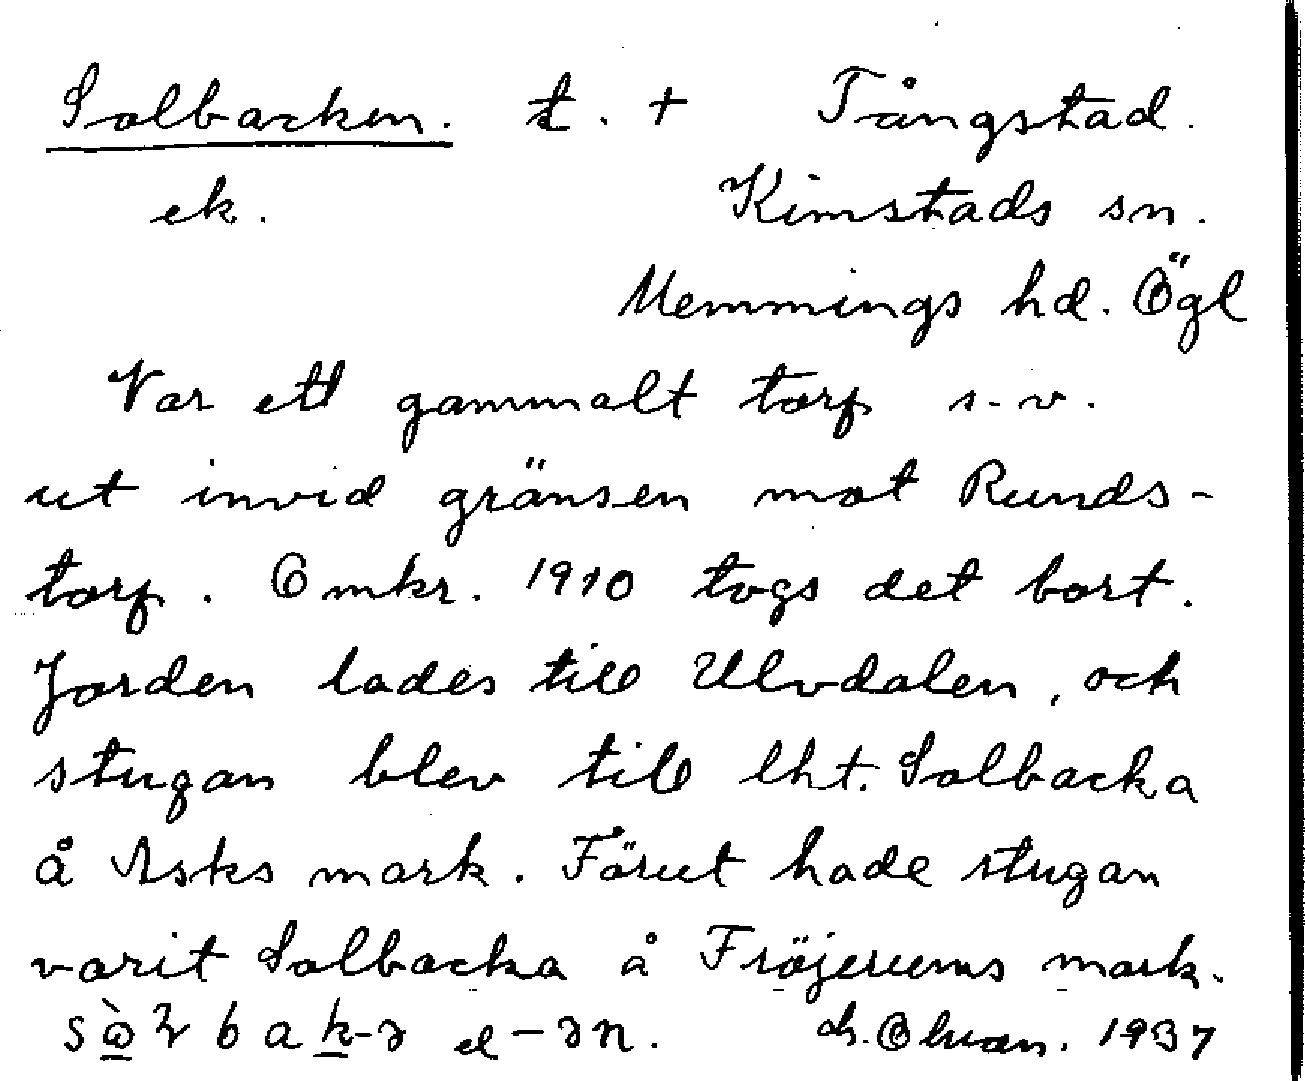 Solbacken. t. + Tångstad.
ek. Kimstads sn.
Memmings hd. Ögl
Var ett gammalt torp s-v.
ut invid gränsen mot Runds-
torp. Omkr. 1910 togs det bort.
Jorden lades till Ulvdalen, och
stugan blev till lht. Solbacka
å Asks mark. Förut hade stugan
varit Solbacka å Fröjerums mark.
el -ən. 1937